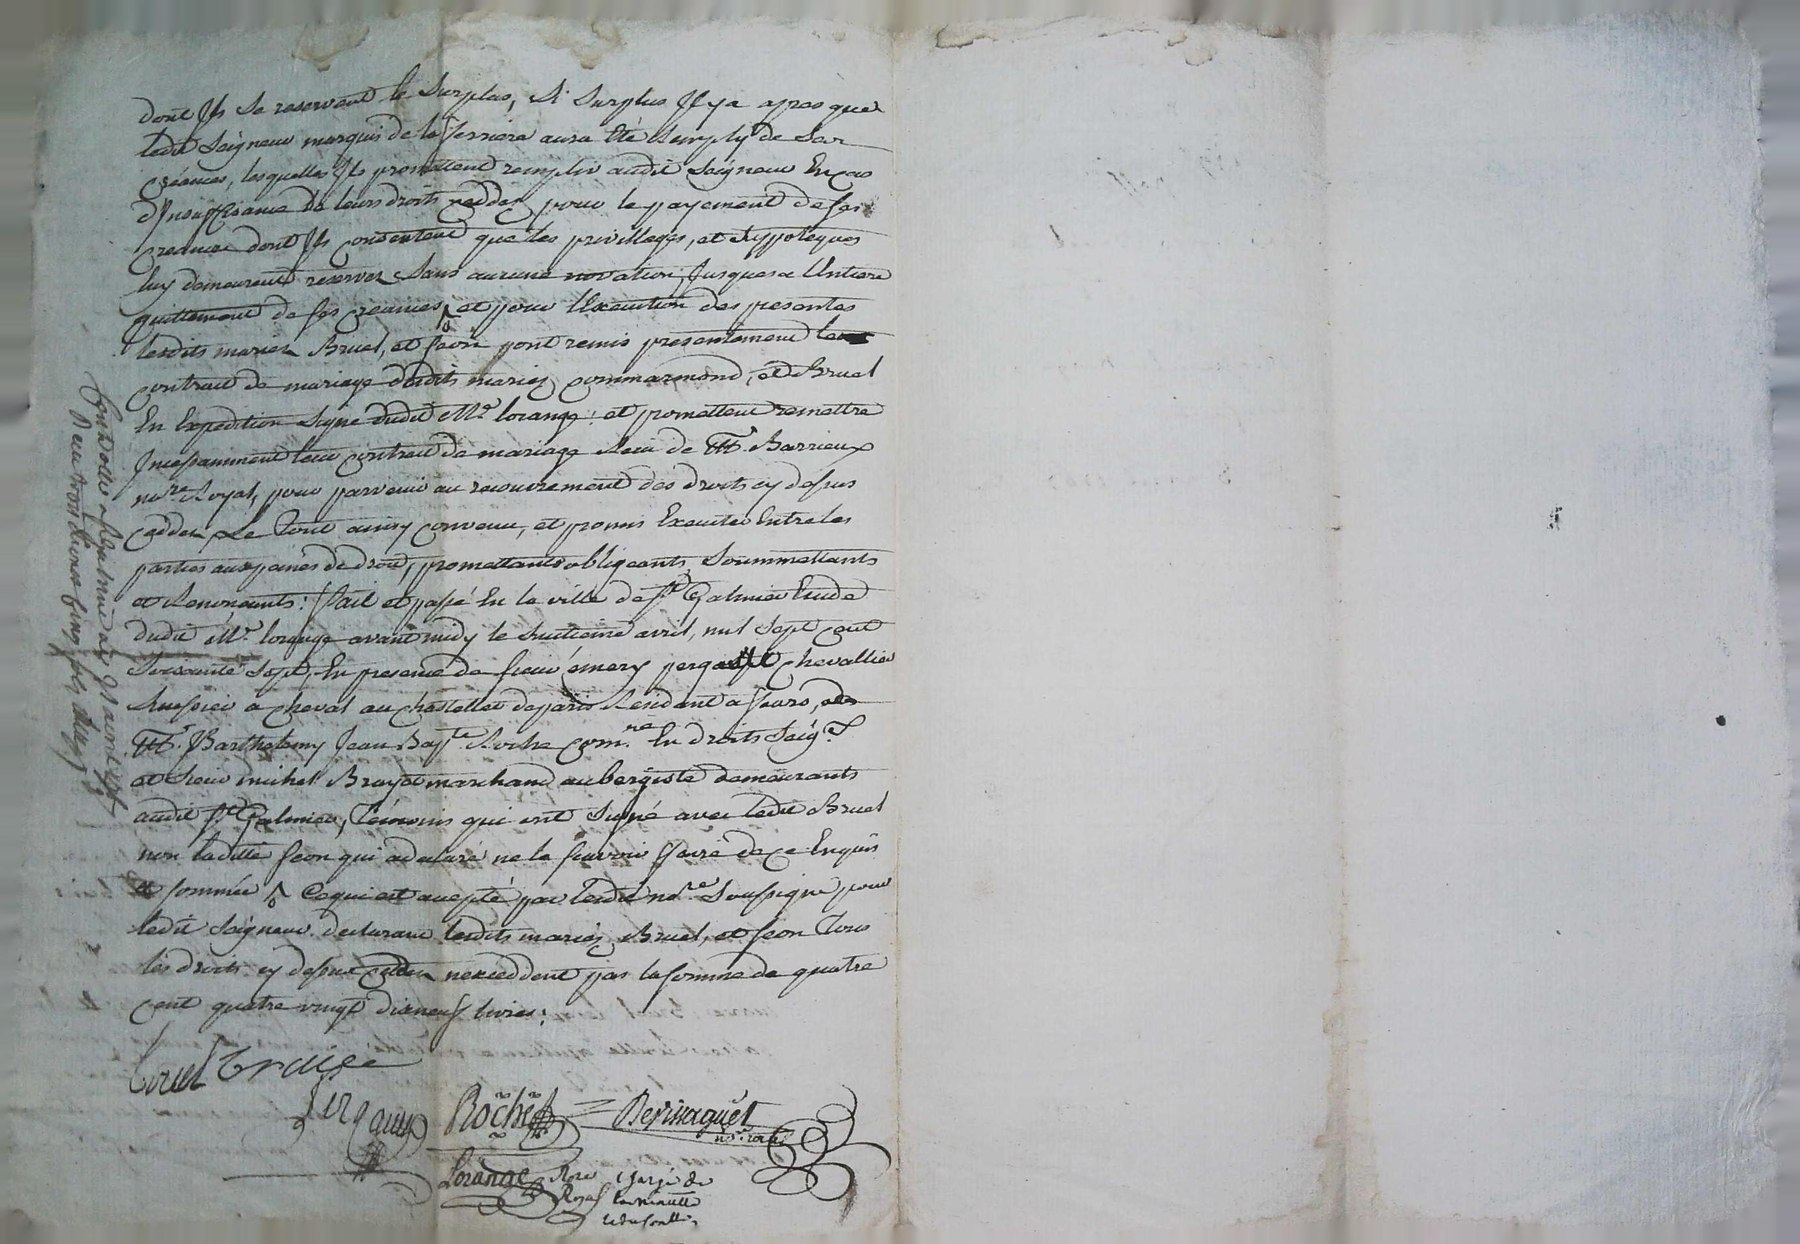 dont Ils se reservent le surplus, si surplus Il y a apres que
ledit Seigneur marquis de la ferriere aura été remply de ses
créances, lesquelles Ils promettent remplir audit Seigneur En cas
d'Insuffisance de leurs droits ceddez pour le payement de ses
creances dont Ils consentent que les privilleges, et hyppoteques
luy demeurent reservez sans aucune novation, Jusques a l'Entiere
quittement de ses creances, et pour l'Execution des presentes
lesdits mariez Bruel, et feon ont remis presentement le
contract de mariage desdits mariez commarmond, et Bruel
En Expedition signé dudit Me. lorange: et promettent remettre
Incessamment leur contract de mariage Receu de Me. Barrieux
nore. Royal, pour parvenir au recouvrement des droits cy dessus
ceddez Le Tout ainsy convenu, et promis Executer Entre les
parties aux peines de droit, promettants obligeants, soummettants
et Renoncants: fait et passé En la ville de St. Galmier Etude
dudit Me. lorange avant midy le huitieme avril, mil sept cent
soixante sept, En presence de sieur émery chevallier
huissier a cheval au chastellet de paris Resident a feurs,
Me. Barthelemy Jean Bapte. Roche comre. En droits Seigx.
et sieur michel Bruyet marchand aubergiste demeurants
audit St. Galmier, Témoins qui ont signé avec ledit Bruel
non laditte feon qui a declaré ne le sçavoir faire de ce Enquis
et sommée, Ce qui est accepté par ledit nore. soussigné pour
ledit Seigneur declarant lesdits mariez Bruel, et feon Tous
les droits cy dessus ceddez n'exceddent pas la somme de quatre
cent quatre vingt dixneuf livres;
Bruel
Roche
Lorange Nore Royal
Controllé a St. Galmier